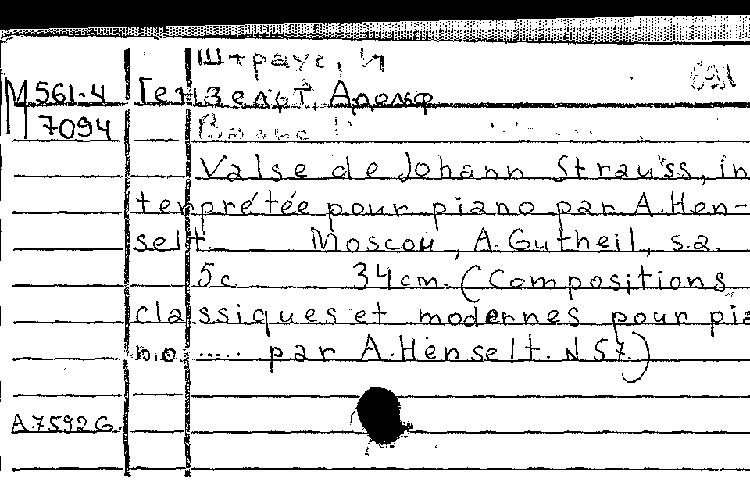 Штраус, И
691
М 561-4 Гензельт, Адольф
7094
Valse de Johann Strauss, in
terprétée pour piano par A. Hen-
selt. Moscou, A. Gutheil, s.a.
5c 34cm. (Compositions
classiques et modernes pour pia
no ..... par A. Henselt. N 57)
A7592G